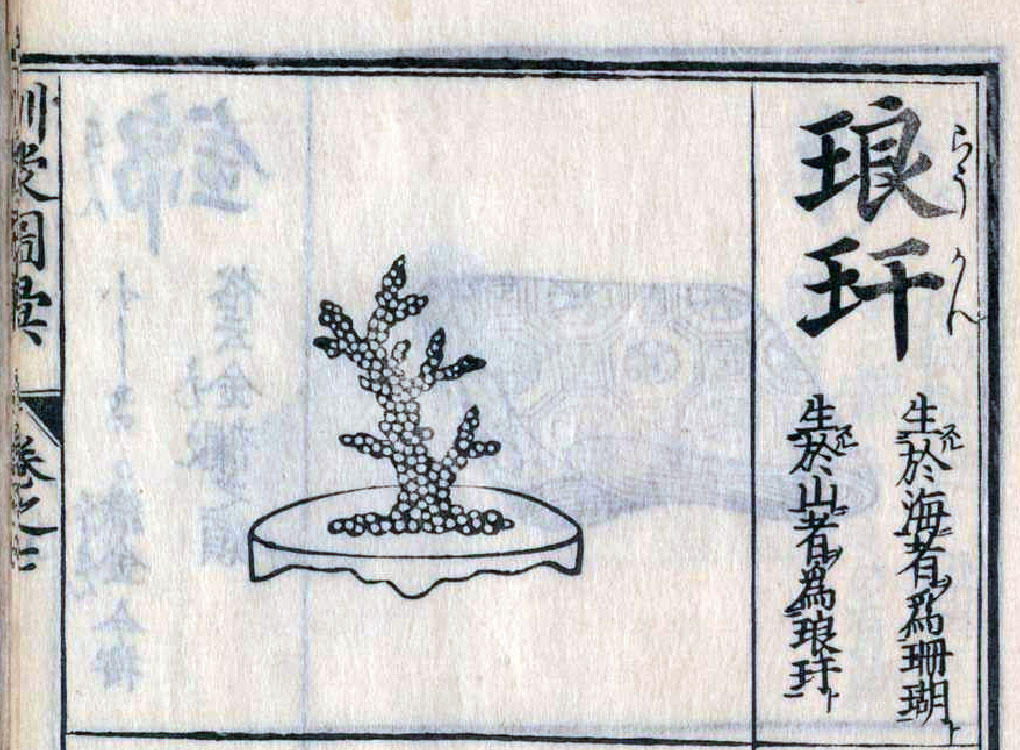 琅玕
らうかん
生於海者為珊瑚
生於山者為琅玕
訓蒙圖彙
卷之